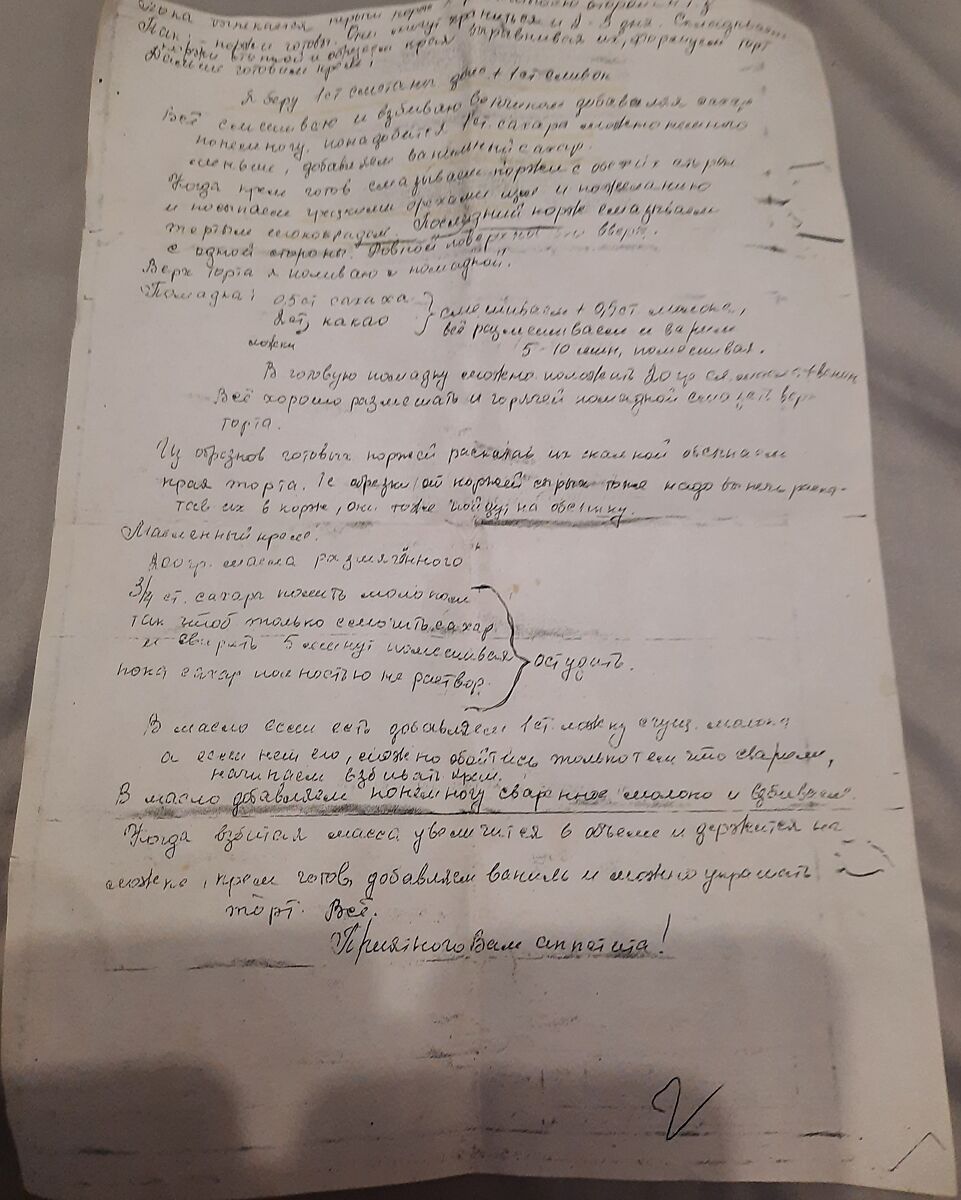 Пока выпекается первый корж
Так, коржи готовы. Они могут храниться и 2-3 дня. Складываем
коржи стопкой и обрезаем края выравнивая их, формируем торт
Дальше готовим крем!
Я беру 1 ст сметаны дом + 1 ст сливок
Всё смешиваю и взбиваю венчиком добавляя сахар
понемногу, понадобится 1 ст. сахара можно немного
меньше, добавляем ванильный сахар.
Когда крем готов смазываем коржи с обеих сторон
и посыпаем грецкими орехами изюм и по желанию
тёртым шоколадом. Последний корж смазываем
с одной стороны. Ровной поверхностью вверх.
Верх торта я поливаю помадкой.
Помадка: 0,5 ст сахаха
2 ст, какао
ложки
смешиваем + 0,5 ст молока,
всё размешиваем и варим
5-10 мин, помешивая.
В готовую помадку можно положить 20 гр сл. масла + ванин
Всё хорошо размешать и горячей помадкой смазать вер
торта.
Из обрезков готовых коржей раскатав их скалкой обсыпаем
края торта. Те обрезки от коржей сырых тоже надо выпечь раска-
тав их в корж, они тоже пойдут на обсыпку.
Масленный крем.
200 гр. масла размягчённого
3/4 ст. сахара полить молоком
так чтоб только смочить сахар
и сварить 5 минут помешивая
пока сахар полностью не раствор.
остудить.
В масло если есть добавляем 1 ст. ложку сгущ. молока
а если нет его, можно обойтись только тем что сварили,
начинаем взбивать крем.
В масло добавляем понемногу сваренное молоко и взбиваем
Когда взбитая масса увеличится в объеме и держится на
ложке, крем готов, добавляем ваниль и можно украшать
торт. Всё.
Приятного Вам аппетита!